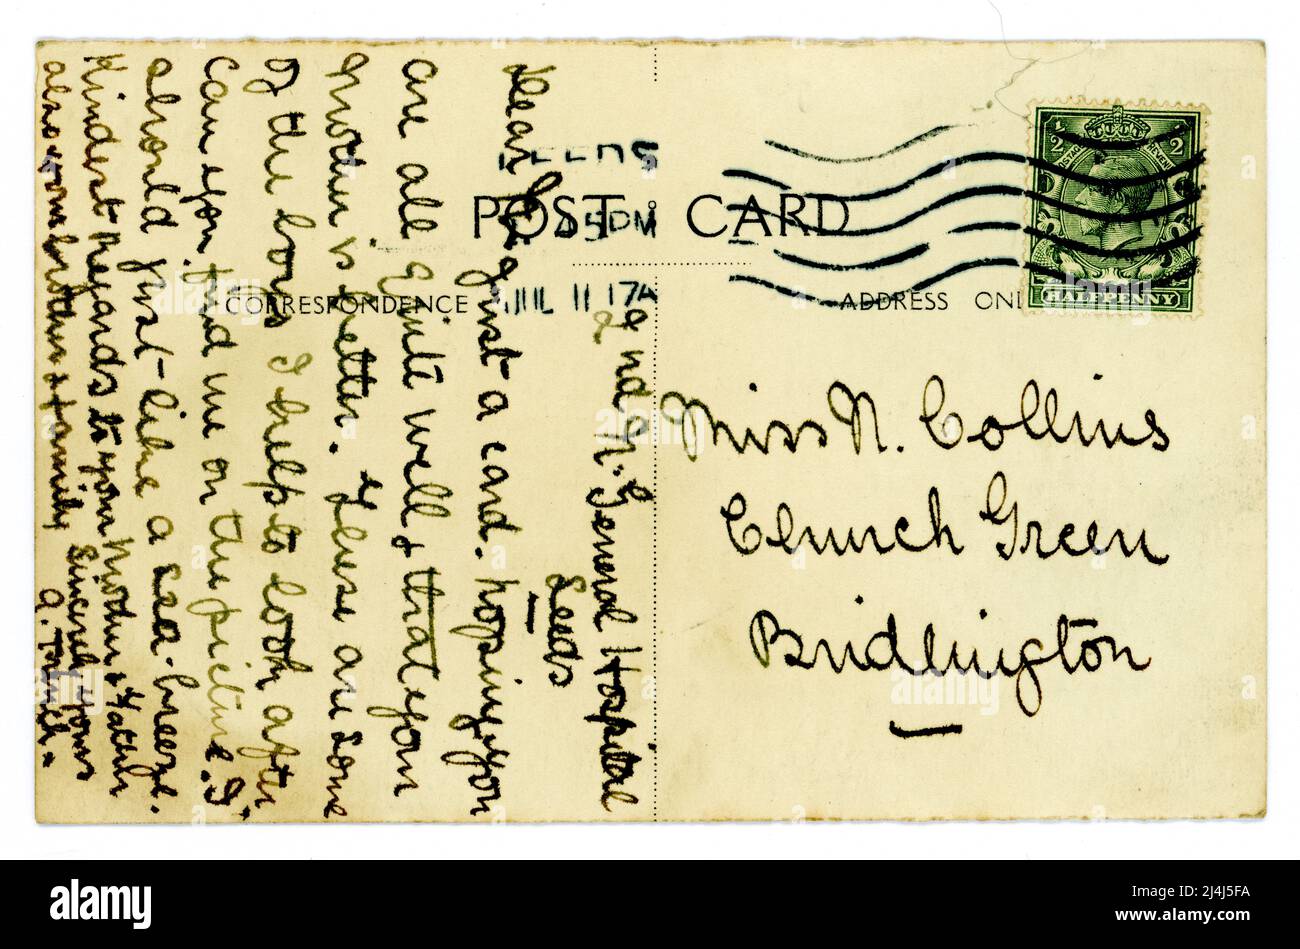 POST CARD
CORRESPONDENCE
ADDRESS ONL
LEEDS
45PM
JUL 11 17
HALFPENNY
2nd N. General Hospital
Leeds
Dear
just a card. hoping you
are all Quite well & that your
Mother is better. These are some
of the boys I help to look after
Can you find me on the picture. I
should just like a sea-breeze.
Kindest regards to your Mother & Father
also your brother & family
Sincerely yours
a.
Miss N. Collins
Church Green
Bridlington
alamy
Image ID: 2J4J5FA
www.alamy.com